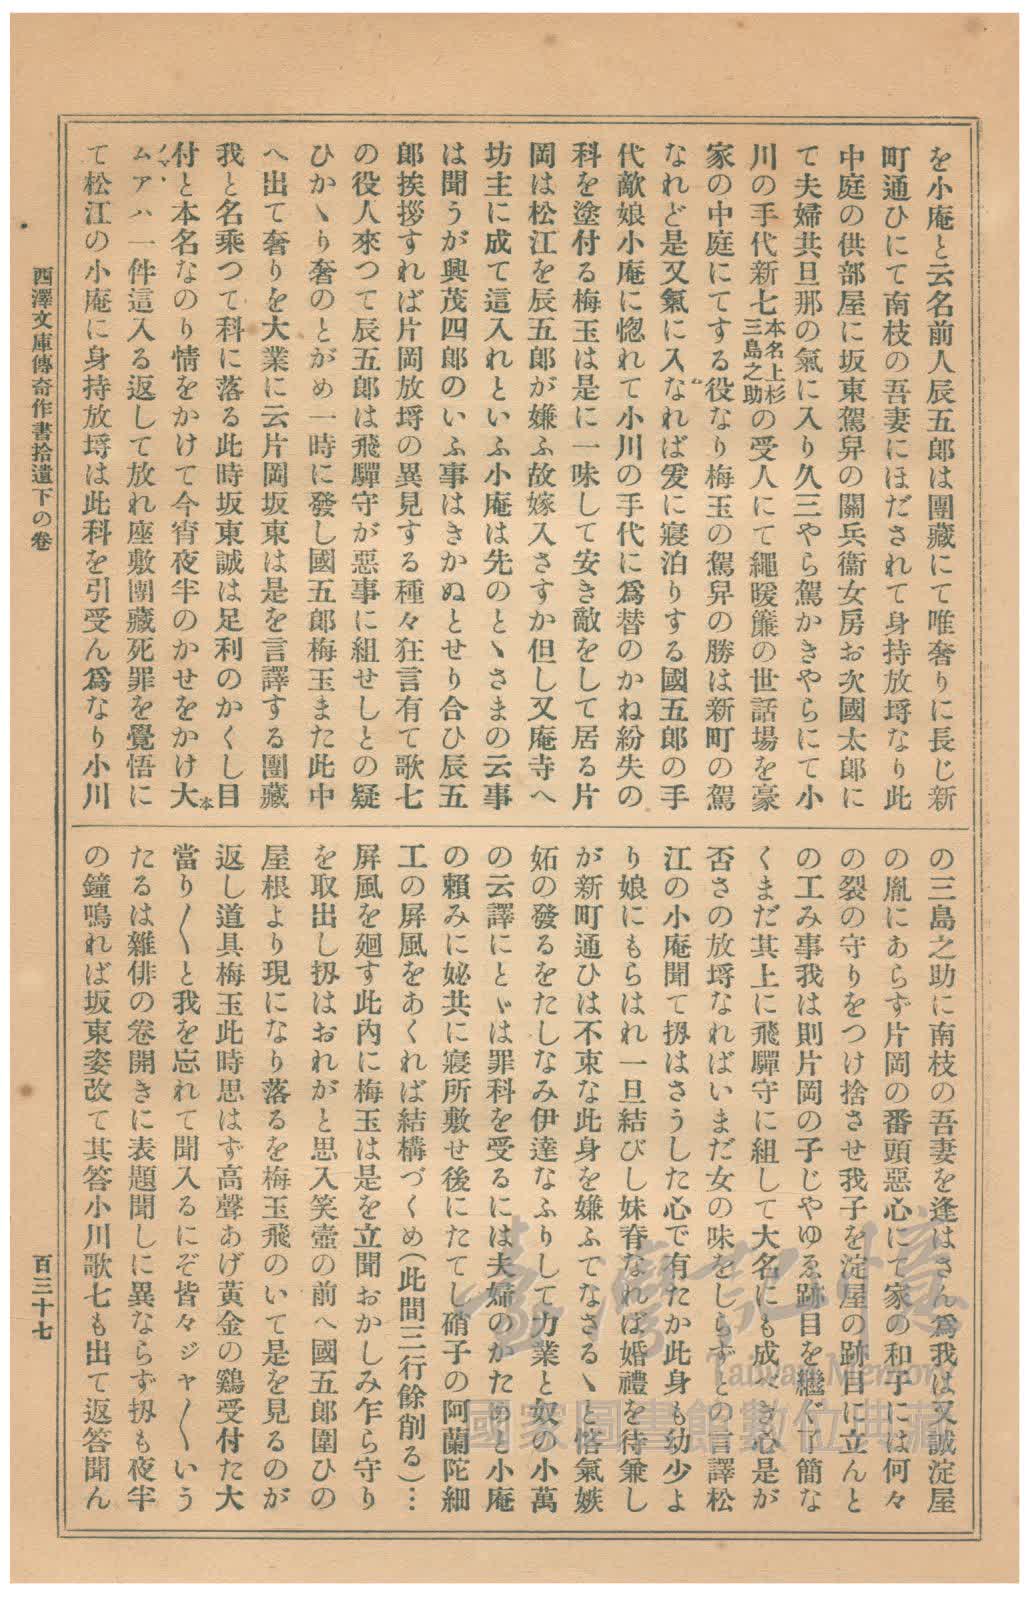 を小庵と云名前人辰五郎は團藏にて唯奢りに長じ新
町通ひにて南枝の吾妻にほだされて身持放埓なり此
中庭の供部屋に坂東駕舁の關兵衞女房お次國太郎に
て夫婦共旦那の氣に入り久三やら駕かきやらにて小
川の手代新七本名上杉三島之助の受人にて繩暖簾の世話場を豪
家の中庭にてする役なり梅玉の駕舁の勝は新町の駕
なれど是又氣に入なれば爰に寢泊りする國五郎の手
代敵娘小庵に惚れて小川の手代に爲替のかね紛失の
科を塗付る梅玉は是に一味して安き敵をして居る片
岡は松江を辰五郎が嫌ふ故嫁入さすか但し又庵寺へ
坊主に成て這入れといふ小庵は先のとゝさまの云事
は聞うが興茂四郎のいふ事はきかぬとせり合ひ辰五
郎挨拶すれば片岡放埓の異見する種々狂言有て歌七
の役人來つて辰五郎は飛驒守が惡事に組せしとの疑
ひかゝり奢のとがめ一時に發し國五郎梅玉また此中
へ出て奢りを大業に云片岡坂東は是を言譯する團藏
我と名乘つて科に落る此時坂東誠は足利のかくし目
付と本名なのり情をかけて今宵夜半のかせをかけ大
ムアハ一件這入る返して放れ座敷團藏死罪を覺悟に
て松江の小庵に身持放埓は此科を引受ん爲なり小川
の三島之助に南枝の吾妻を逢はさん爲我は又誠淀屋
の胤にあらず片岡の番頭惡心にて家の和子には何々
の裂の守りをつけ捨させ我子を淀屋の跡目に立んと
の工み事我は則片岡の子じやゆゑ跡目を繼ぐ了簡な
くまだ其上に飛驒守に組して大名にも成べき心是が
否さの放埓なればいまだ女の味をしらずとの言譯松
江の小庵聞て扨はさうした心で有たか此身も幼少よ
り娘にもらはれ一旦結びし妹脊なれば婚禮を待兼し
が新町通ひは不束な此身を嫌ふてなさるゝと悋氣嫉
妬の發るをたしなみ伊達なふりして力業と奴の小萬
の云譯にとゞは罪科を受るには夫婦のかためと小庵
の賴みに妼共に寢所敷せ後にたてし硝子の阿蘭陀細
工の屏風をあくれば結構づくめ(此間三行餘削る)…
屏風を廻す此内に梅玉は是を立聞おかしみ乍ら守り
を取出し扨はおれがと思入笑壺の前へ國五郎圍ひの
屋根より現になり落るを梅玉飛のいて是を見るのが
返し道具梅玉此時思はず高聲あげ黃金の鷄受付た大
當り〳〵と我を忘れて聞入るにぞ皆々ジャ〳〵いう
たるは雜俳の卷開きに表題聞しに異ならず扨も夜半
の鐘鳴れば坂東姿改て其答小川歌七も出て返答聞ん
西澤文庫傳奇作書拾遺下の卷
百三十七
臺灣記憶
Taiwan Memory
國家圖書館數位典藏